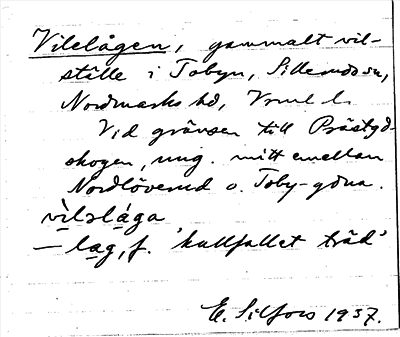 Vilelågen, gammalt vil-
ställe i Tobyn, Silleruds sn,
Nordmarks hd, Vrml l.
Vid gränsen till Prästgd-
skogen, ung. mitt emellan
Nordlöverud o. Toby-gdna.
vìlslåga
— lag, f. 'kullfallet träd'
E. Silfors 1937.